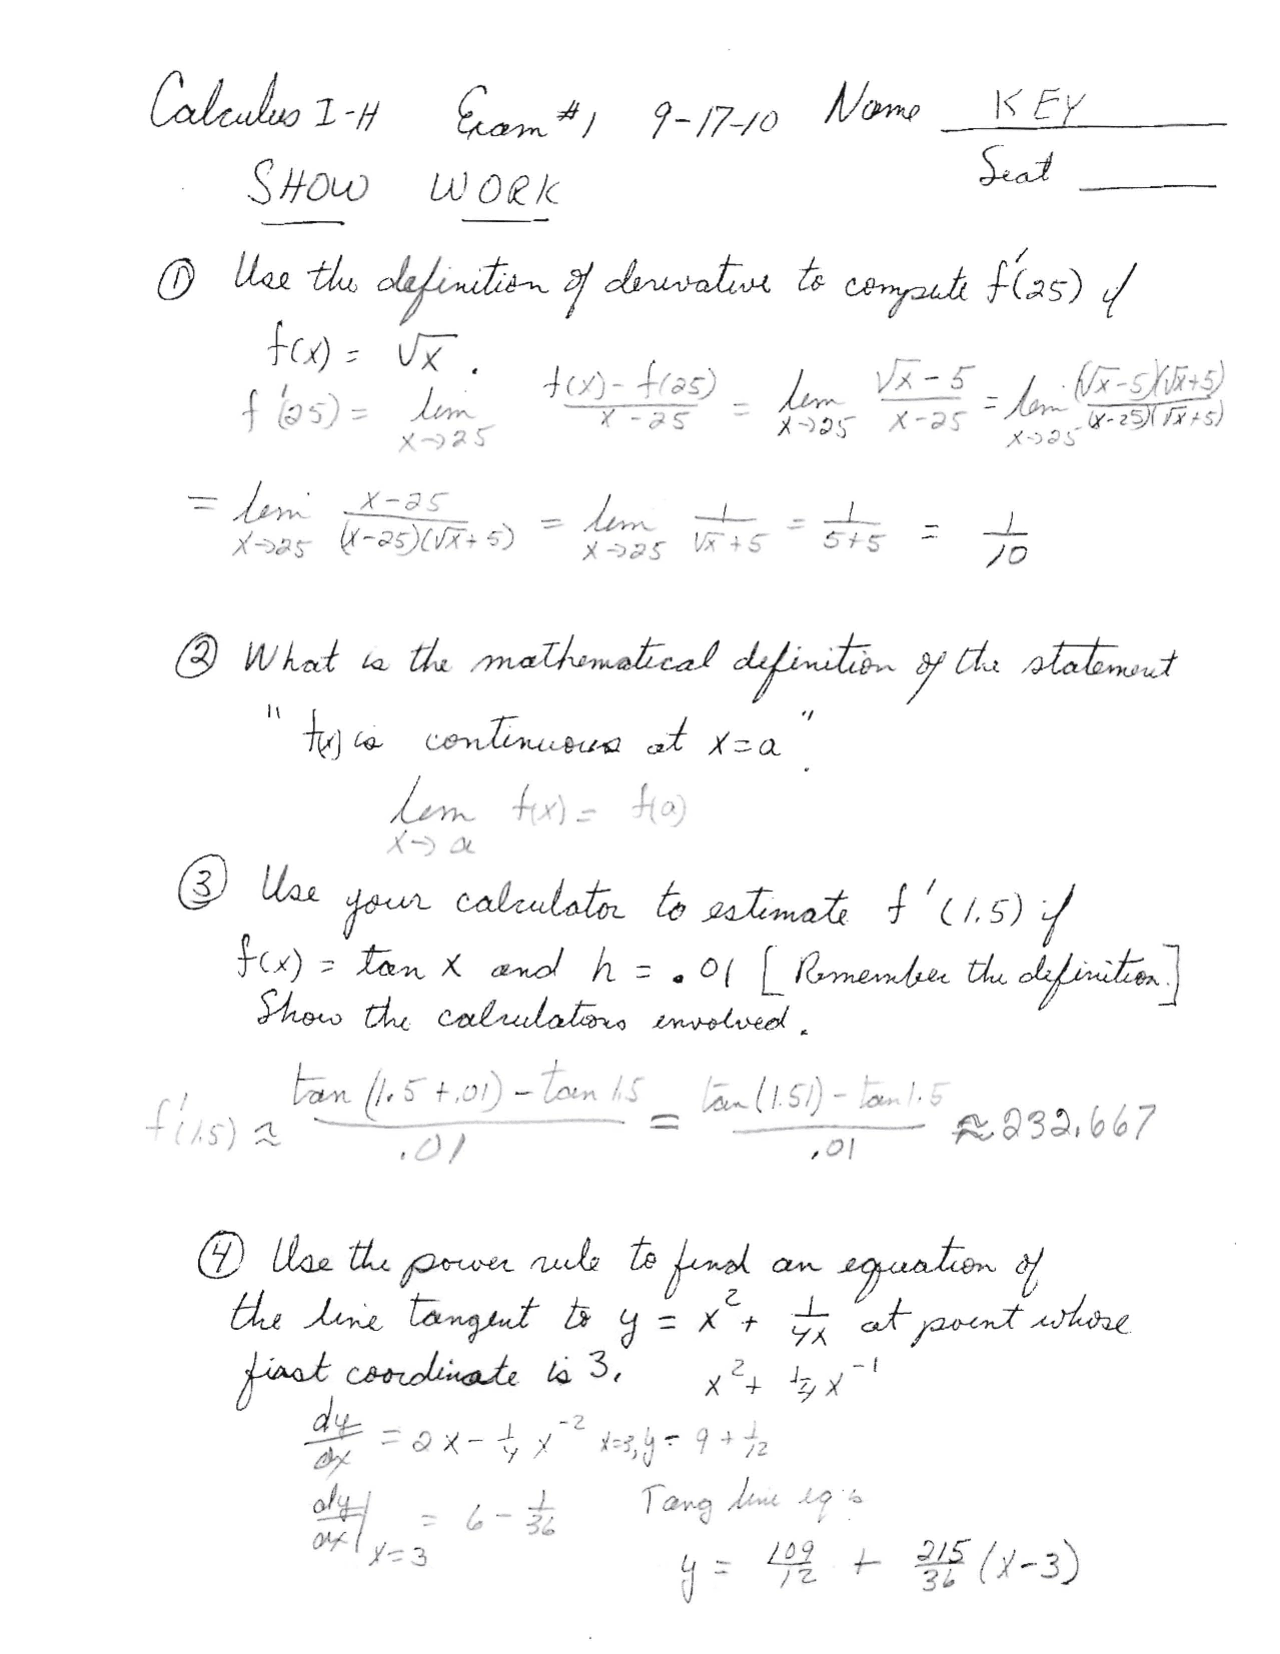 Calculus I-H Exam #1 9-17-10 Name KEY
SHOW WORK Seat
① Use the definition of derivative to compute f'(25) if
f(x) = √x.
f'(25) = lim x→25 (f(x) - f(25))/(x - 25) = lim x→25 (√x - 5)/(x - 25) = lim x→25 ((√x - 5)(√x + 5))/((x - 25)(√x + 5))
= lim x→25 (x - 25)/((x - 25)(√x + 5)) = lim x→25 1/(√x + 5) = 1/(5 + 5) = 1/10
② What is the mathematical definition of the statement
"f(x) is continuous at x = a".
lim x→a f(x) = f(a)
③ Use your calculator to estimate f'(1.5) if
f(x) = tan x and h = .01 [Remember the definition.]
Show the calculations involved.
f'(1.5) ≈ (tan (1.5 + .01) - tan 1.5)/.01 = (tan (1.51) - tan 1.5)/.01 ≈ 232.667
④ Use the power rule to find an equation of
the line tangent to y = x² + 1/4x at point whose
first coordinate is 3. x² + ¼x⁻¹
dy/dx = 2x - ¼x⁻² x=3, y = 9 + 1/12
dy/dx | x=3 = 6 - 1/36 Tang line eq is
y = 109/12 + 215/36 (x - 3)